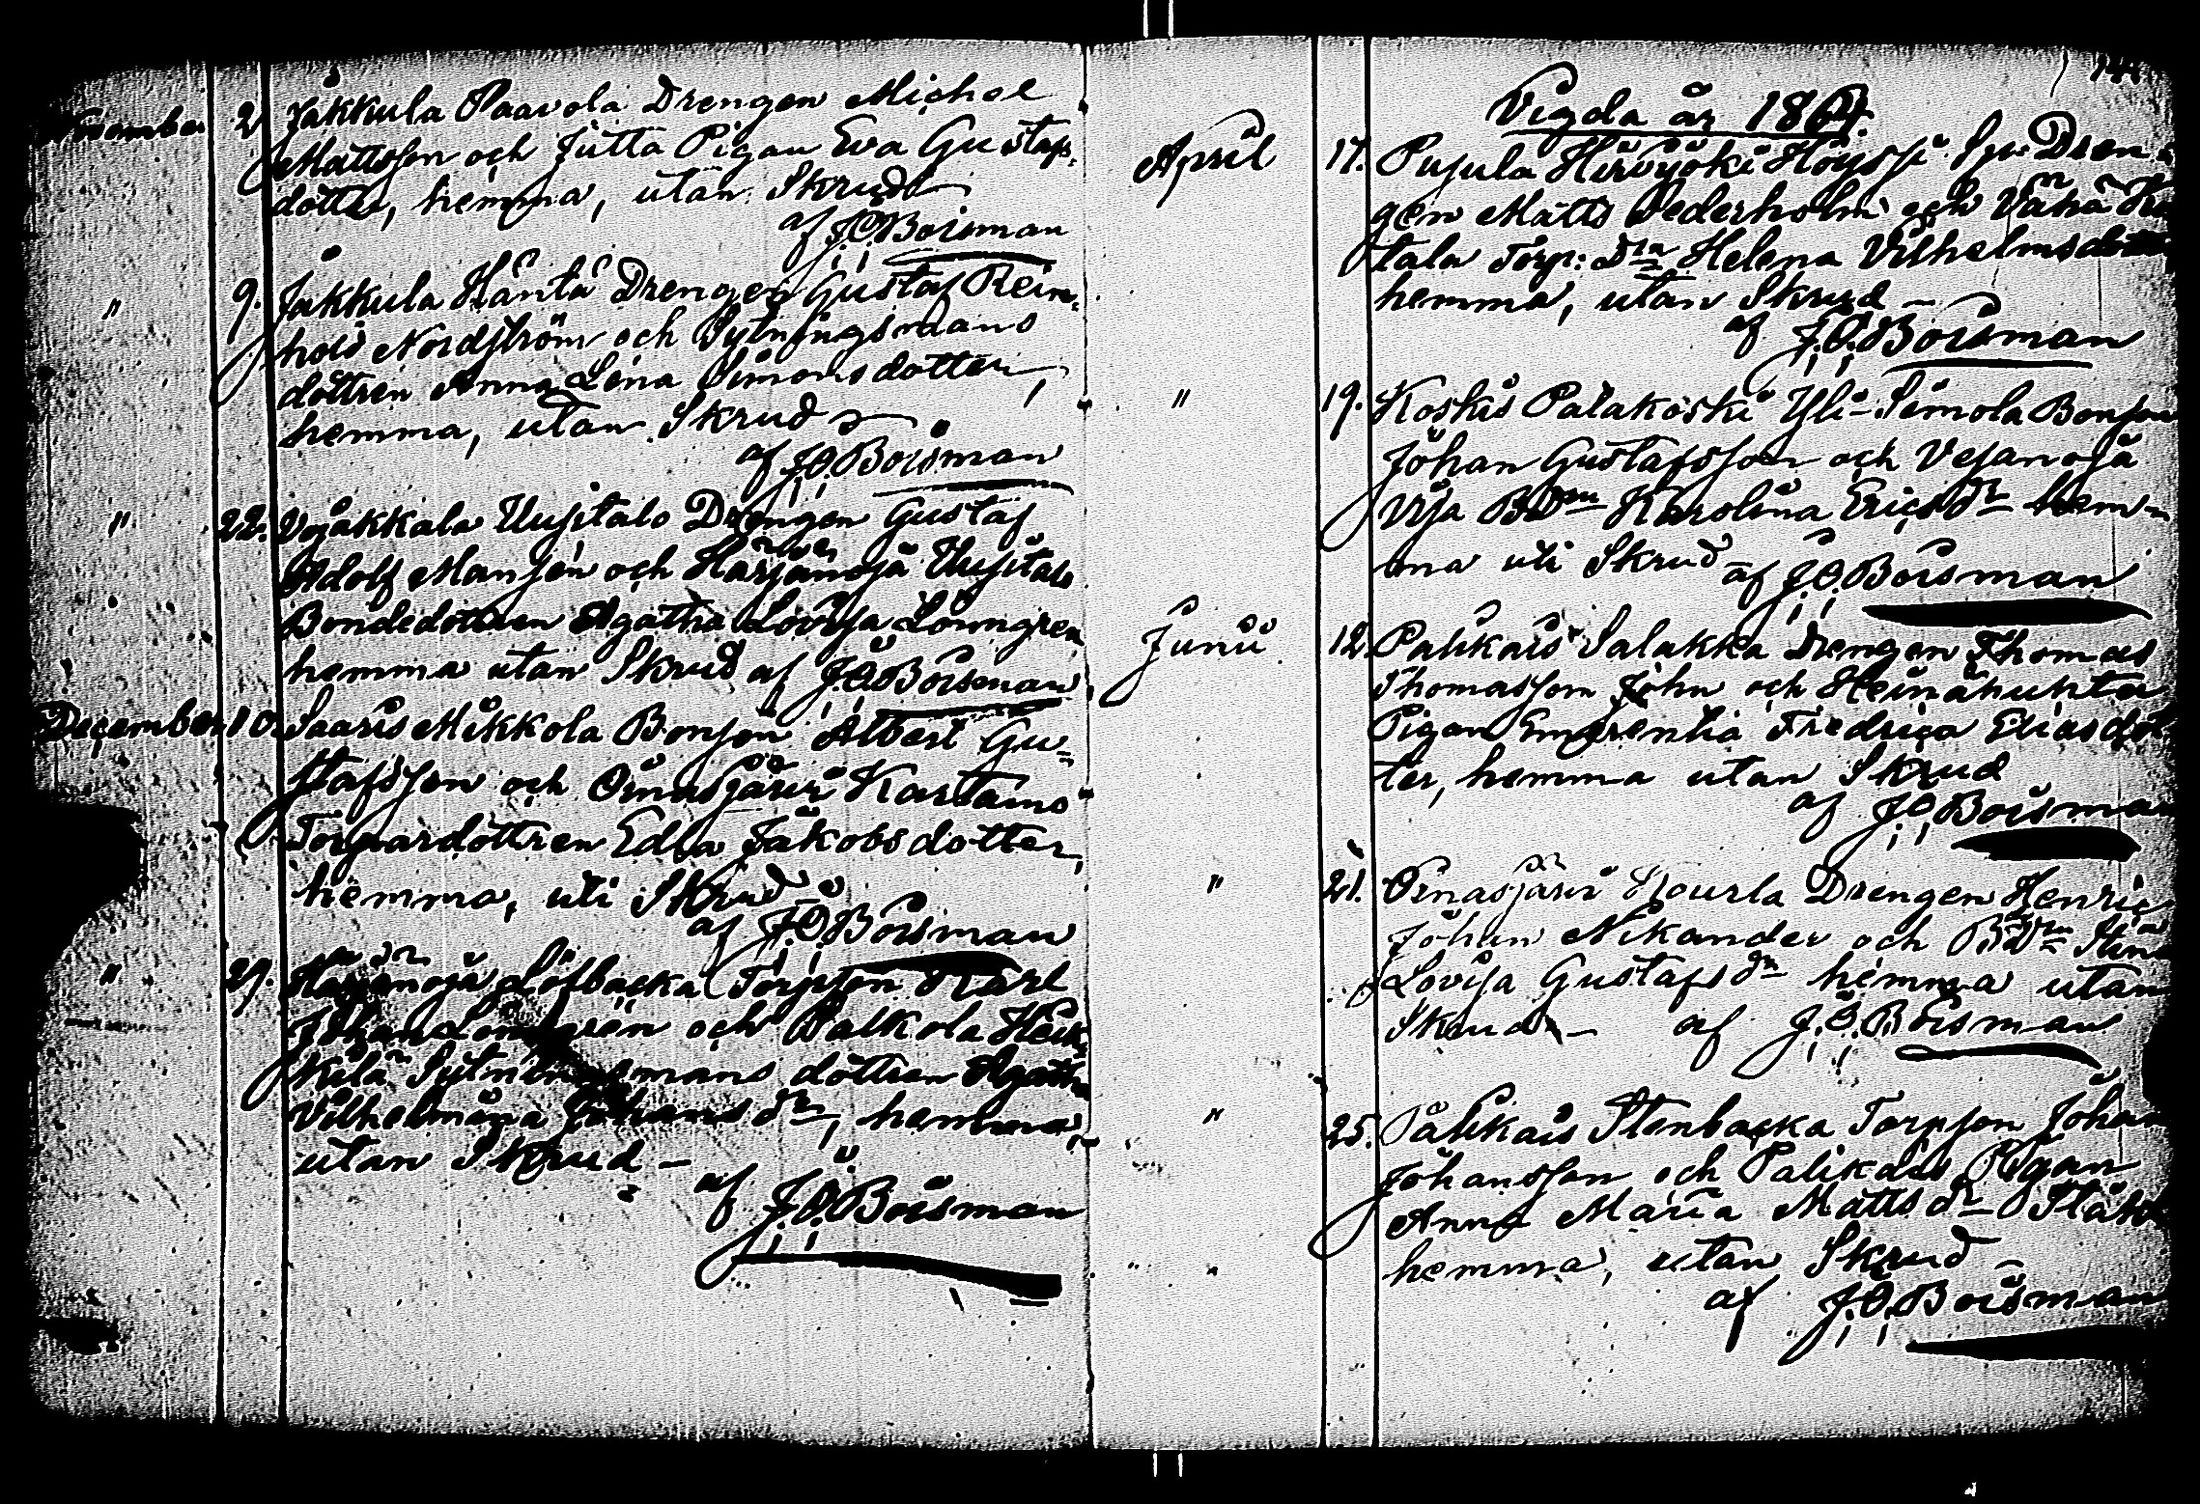 November 2. Jakkula Paavola Drengen Michel
Mattsson och Jutta Pigan Eva Gustafs-
dotter, hemma, utan Skrud
af J.O. Boisman
" 9. Jakkula Hänta Drengen Gustaf Rein-
hold Nordström och Sytningsmans
dottren Anna Lena Simonsdotter,
hemma, utan Skrud
af J.O. Boisman
" 22. Vojakkala Uusitalo Drengen Gustaf
Adolf Mansén och Härjänoja Uusitalo
Bondedottren Agatha Lovisa Lönngren
hemma utan Skrud af J.O. Boisman
December 10. Saaris Mikkola Bonson Albert Gu-
stafsson och Oinasjärvi
Torpardottren Edla Jakobsdotter,
hemma, uti Skrud
af J.O. Boisman
" Härjänoja Löfbacka Torpson Karl
Johan och Palkola Heik-
kilä Sytningsmans dottren Agatha
Vilhelmina Johans dr, hemma,
utan Skrud –
af J.O. Boisman
Vigda år 1864.
April 17. Pusula Hirvijoki Dren-
gen Matts Cederholm och Vähä
tala Torp: Drn Helena Vilhelmsdotter
hemma, utan Skrud –
af J.O. Boisman
" 19. Koskis Palakoski Yli-Simola Bonson
Johan Gustafsson och Vejanoja
BDrn Karolina Ericsdr hem-
ma uti Skrud af J.O. Boisman
Junii 12. Palikais Salakka Drengen Thomas
Thomasson John och Heinähuhta
Pigan Emerentia Fredrica Eliasdot-
ter, hemma utan Skrud
af J.O. Boisman
" 21. Oinasjärvi Kourla Drengen Henric
Johan Nikander och BDrn Stina
Lovisa Gustafsdr hemma utan
Skrud – af J.O. Boisman
" 25. Palikais Stenbacka Torpson Johan
Johansson och Palikais Pigan
Anna Maria Mattsdr
hemma, utan Skrud –
af J.O. Boisman